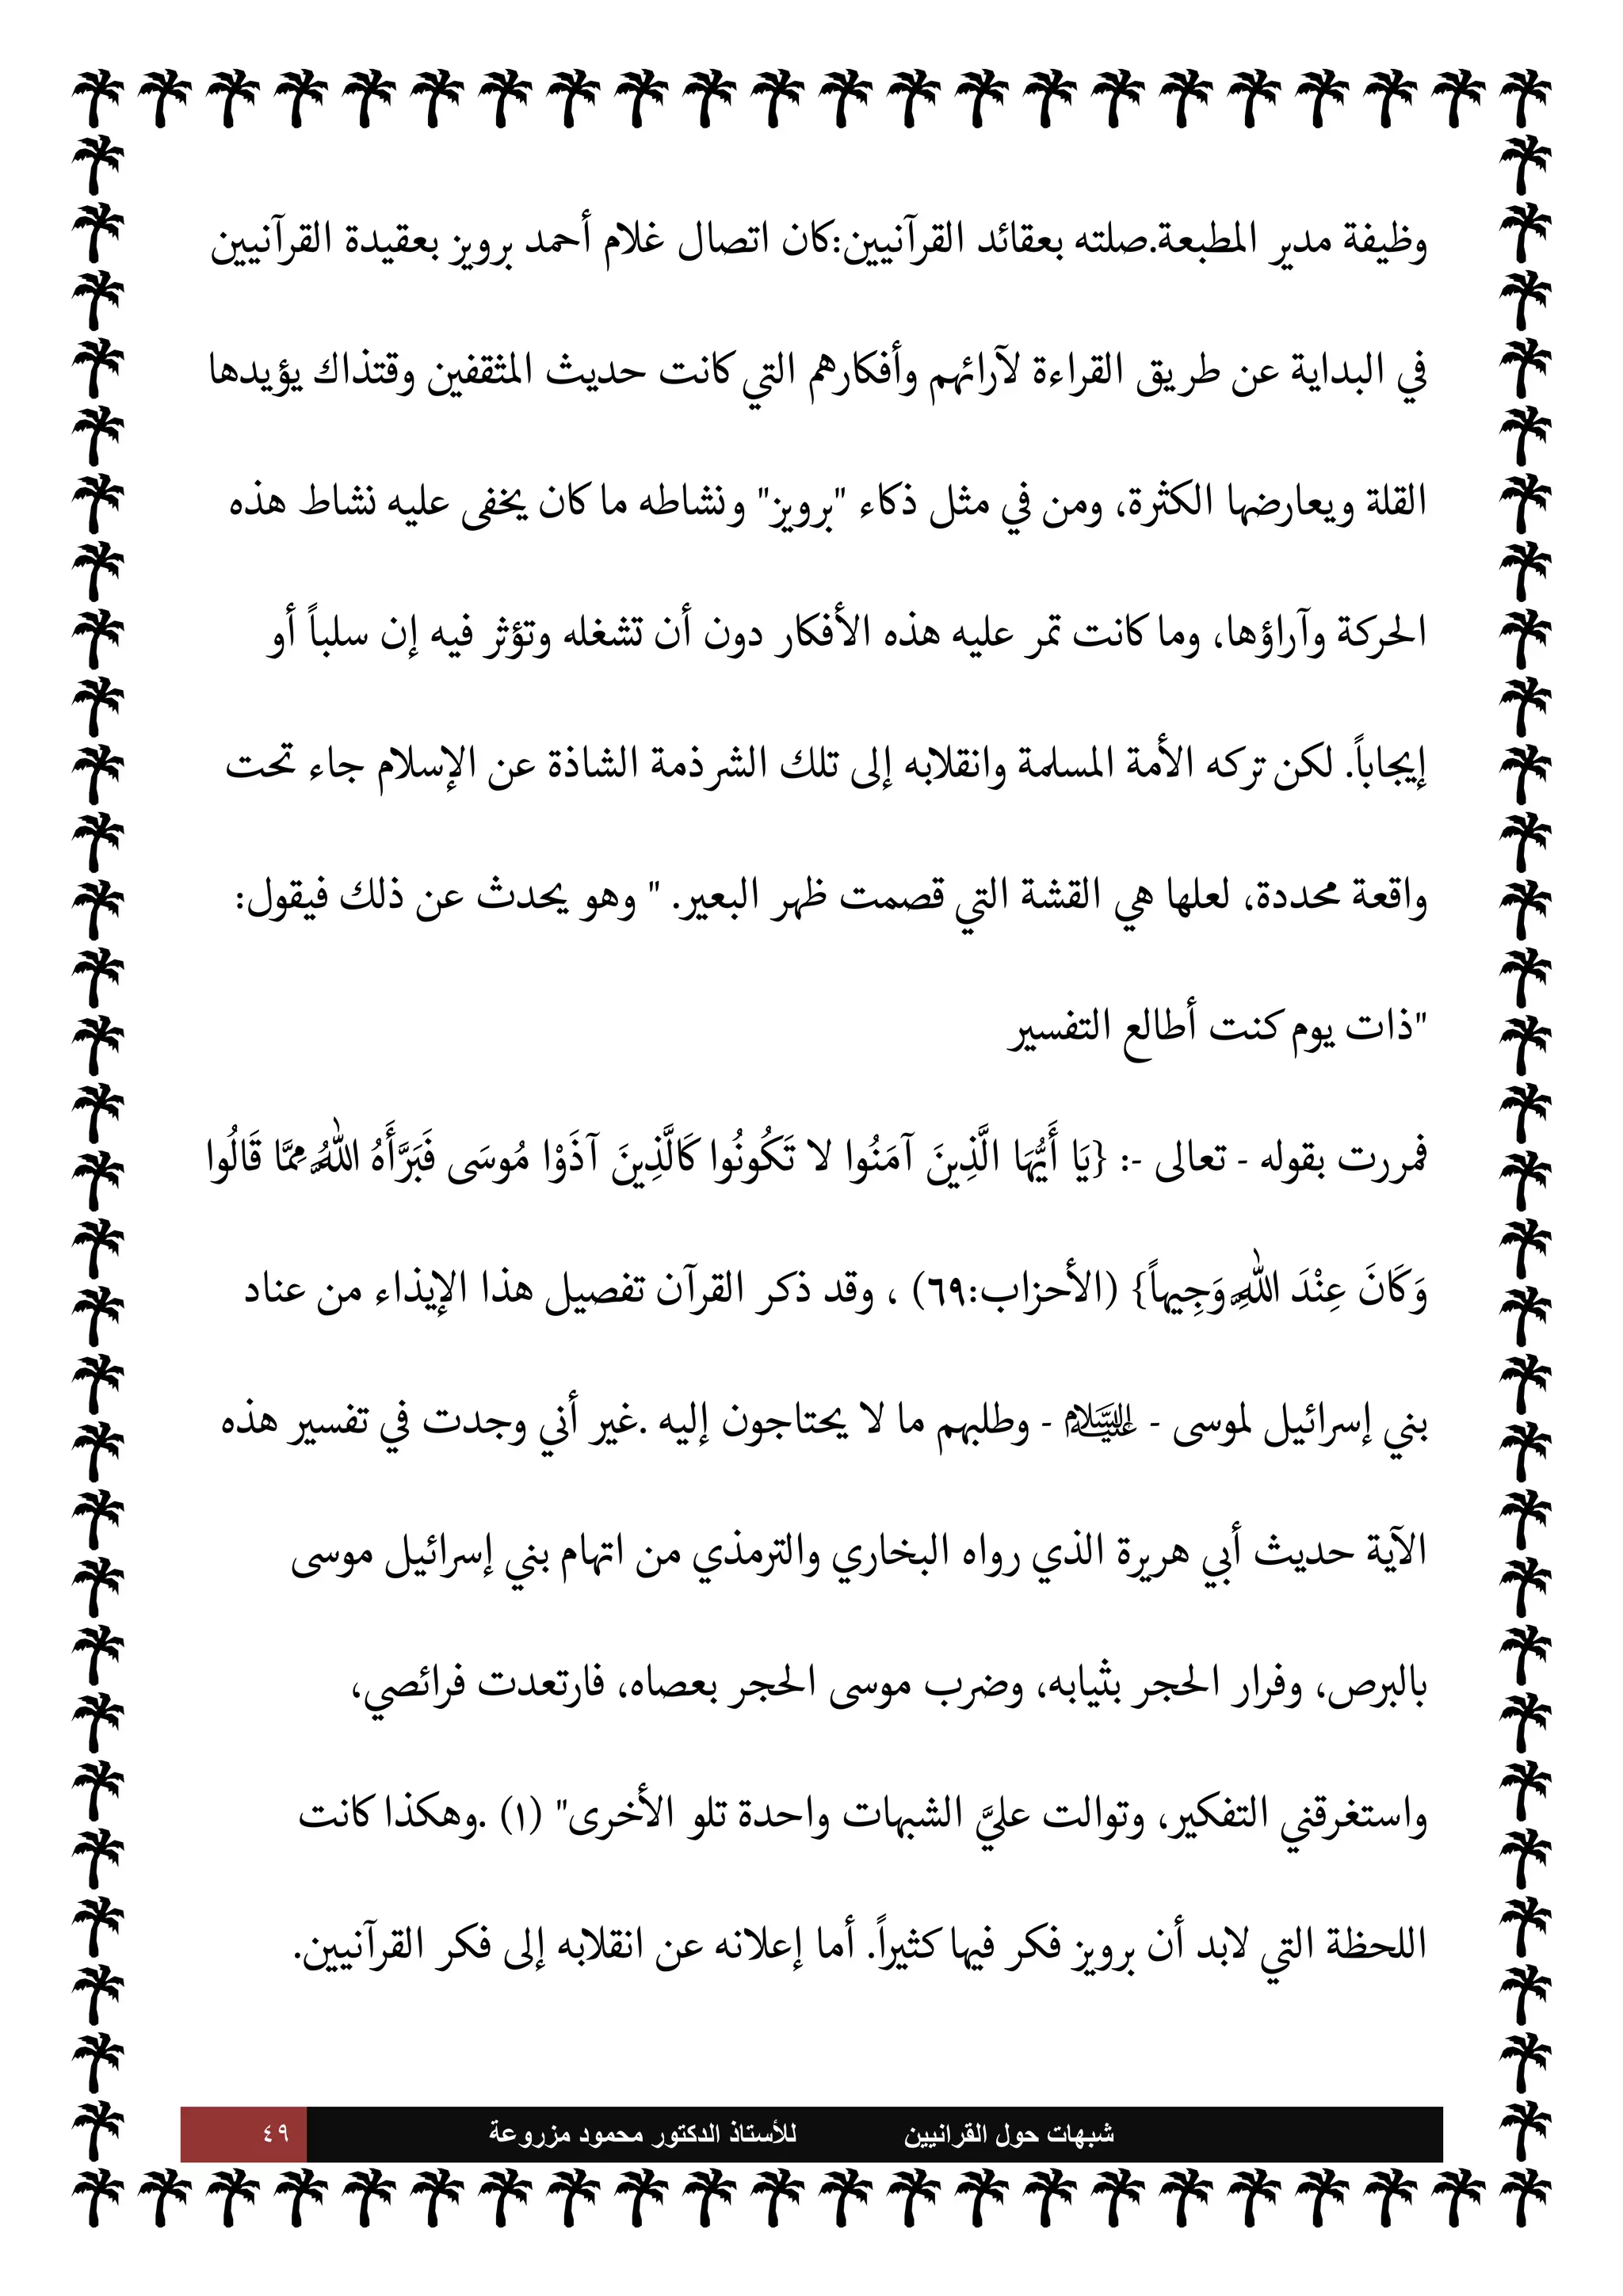 وظيفة مدير المطبعة.صلته بعقائد القرآنيين:كان اتصال غلام أحمد برويز بعقيدة القرآنيين
في البداية عن طريق القراءة لآرائهم وأفكارهم التي كانت حديث المثقفين وقتذاك يؤيدها
القلة ويعارضها الكثرة، ومن في مثل ذكاء "برويز" ونشاطه ما كان يخفى عليه نشاط هذه
الحركة وآراؤها، وما كانت تمر عليه هذه الأفكار دون أن تشغله وتؤثر فيه إن سلباً أو
إيجاباً. لكن تركه الأمة المسلمة وانقلابه إلى تلك الشرذمة الشاذة عن الإسلام جاء تحت
واقعة محددة، لعلها هي القشة التي قصمت ظهر البعير. " وهو يحدث عن ذلك فيقول:
"ذات يوم كنت أطالع التفسير
فمررت بقوله - تعالى -: {يَا أَيُّهَا الَّذِينَ آمَنُوا لا تَكُونُوا كَالَّذِينَ آذَوْا مُوسَى فَبَرَّأَهُ اللَّهُ مِمَّا قَالُوا
وَكَانَ عِنْدَ اللَّهِ وَجِيهاً} (الأحزاب:٦٩) ، وقد ذكر القرآن تفصيل هذا الإيذاء من عناد
بني إسرائيل لموسى - عليه السلام - وطلبهم ما لا يحتاجون إليه .غير أني وجدت في تفسير هذه
الآية حديث أبي هريرة الذي رواه البخاري والترمذي من اتهام بني إسرائيل موسى
بالبرص، وفرار الحجر بثيابه، وضرب موسى الحجر بعصاه، فارتعدت فرائصي،
واستغرقني التفكير، وتوالت عليَّ الشبهات واحدة تلو الأخرى" (١) .وهكذا كانت
اللحظة التي لابد أن برويز فكر فيها كثيراً. أما إعلانه عن انقلابه إلى فكر القرآنيين.
شبهات حول القرانيين للأستاذ الدكتور محمود مزروعة ٤٩